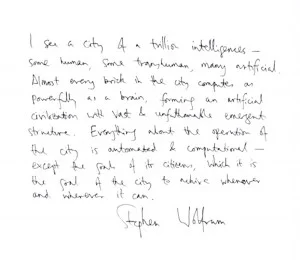 I see a city of a trillion intelligences —
some human, some transhuman, many artificial.
Almost every brick in the city computes as
powerfully as a brain, forming an artificial
civilization with vast & unfathomable emergent
structure. Everything about the operation of
the city is automated & computational —
except the goals of its citizens, which it is
the goal of the city to achieve whenever
and wherever it can.
Stephen Wolfram